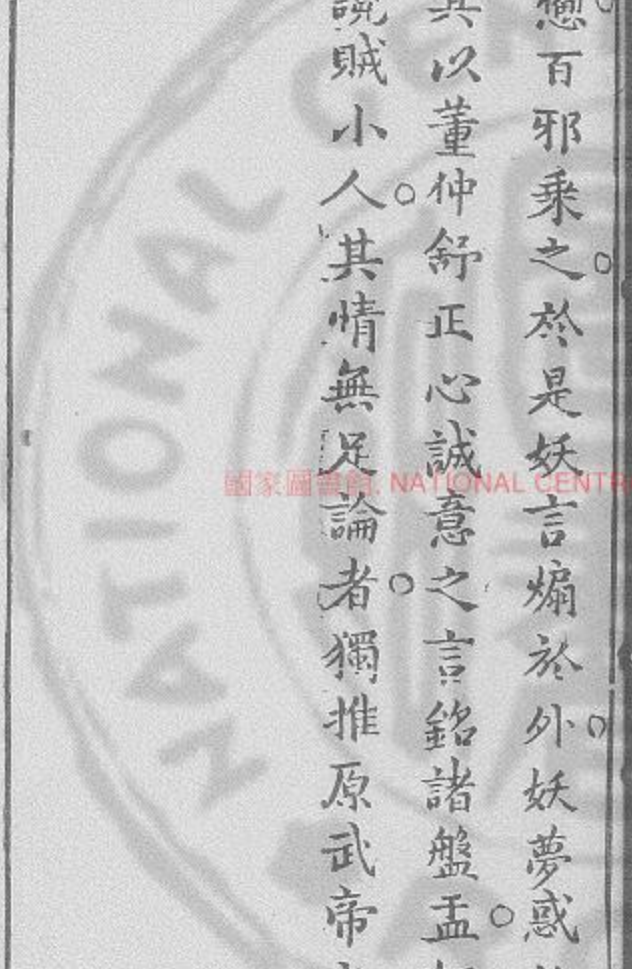 愆百邪乗之。於是妖言煽於外。妖夢惑
其以董仲舒正心誠意之言銘諸盤盂。
說賊小人。其情無足論者。獨推原武帝
國家圖書館, NATIONAL CENTR
NATIONAL CENT